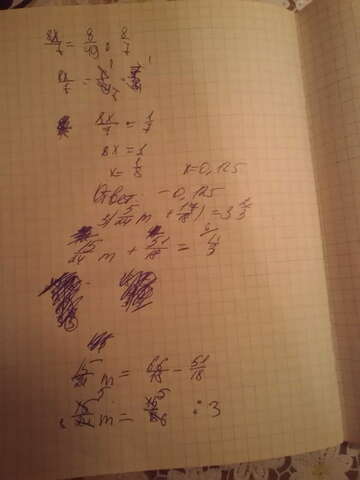 8x/7 = 8/49 : 8/7
8x/7 = 8/49 · 7/8
8x/7 = 1/7
8x = 1
x = 1/8 x=0,125
Ответ: -0,125
3(5/24 m + 17/18) = 3 2/3
15/24 m + 51/18 =
15/24 m = 66/18 - 51/18
15/24 m = : 3